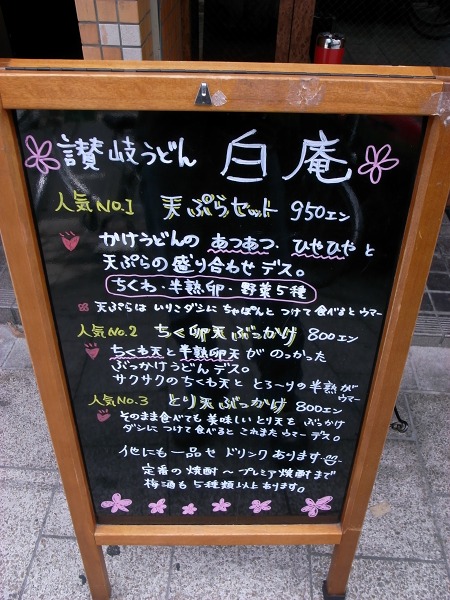 讃岐うどん 白庵
人気No.1 天ぷらセット 950エン
かけうどんの あつあつ、ひやひや と
天ぷらの盛り合わせデス。
ちくわ・半熟卵・野菜5種
天ぷらは いりこダシに ちゃぽんと つけて食べるとウマー
人気No.2 ちく卵天ぶっかけ 800エン
ちくわ天と半熟卵天が のっかった
ぶっかけうどんデス。
サクサクのちくわ天と とろーりの半熟が
ウマー
人気No.3 とり天ぶっかけ 800エン
そのまま食べても 美味しい とり天を ぶっかけ
ダシにつけて食べると これまた ウマー デス。
他にも一品やドリンクあります
定番の焼酎〜プレミア焼酎まで
梅酒も5種類以上あります。